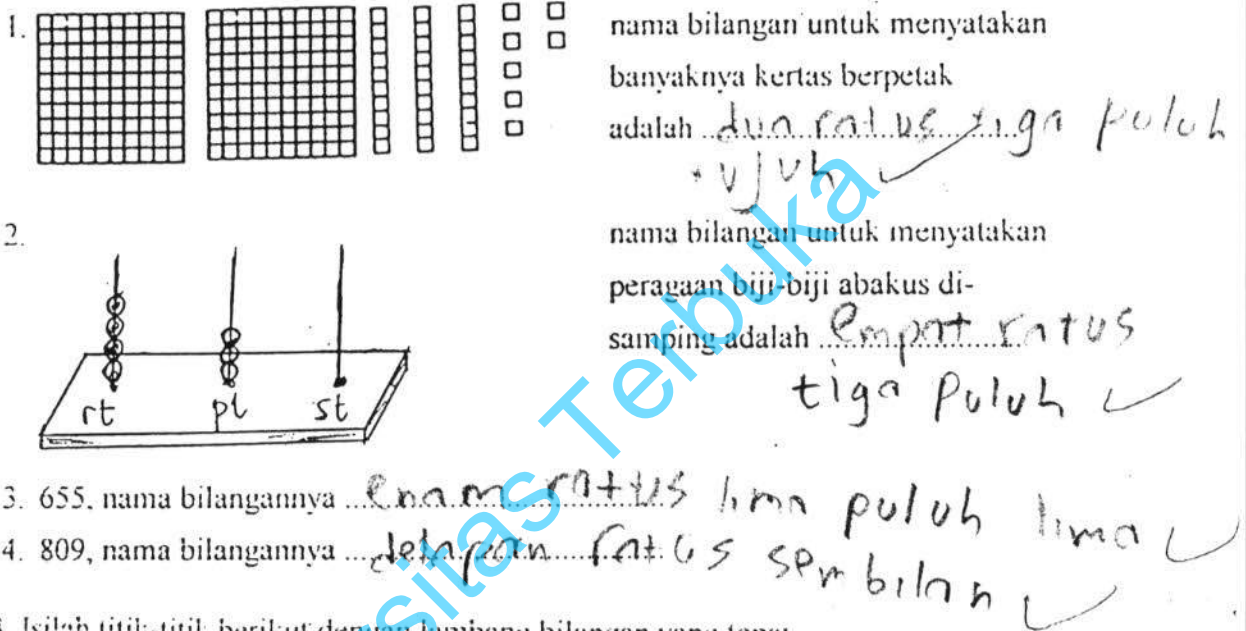 1. nama bilangan untuk menyatakan
banyaknya kertas berpetak
adalah ...dua ratus tiga puluh
tujuh
2. nama bilangan untuk menyatakan
peragaan biji-biji abakus di-
samping adalah ...empat ratus
tiga puluh
rt pl st
3. 655, nama bilangannya ...enam ratus lima puluh lima
4. 809, nama bilangannya ...delapan ratus sembilan
Isilah titik-titik berikut dengan lambang bilangan yang tepat
Universitas Terbuka